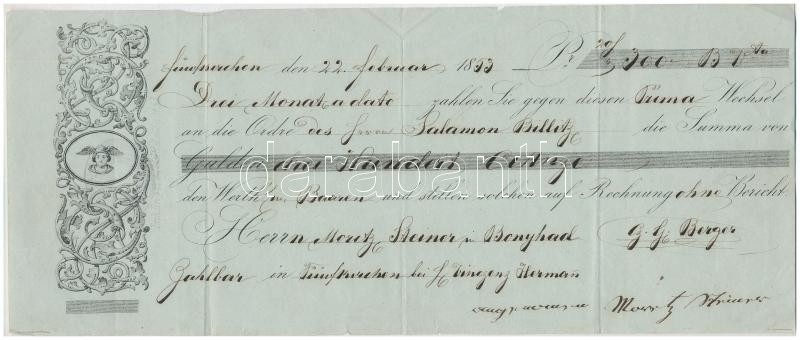 Fünfkirchen den 22. Februar 1853 Pr. 300 B V
Drei Monat a dato zahlen Sie gegen diesen Prima Wechsel
an die Ordre des Herrn Salamon Billitz die Summa von
Guld. drei Hundert
den Werth in Baaren und stellen solchen auf Rechnung ohne Bericht.
Herrn Moritz Steiner in Bonyhad G. H. Berger
Zahlbar in Fünfkirchen bei H. Vinzenz Herman
angenomen Moritz Steiner
darabanth